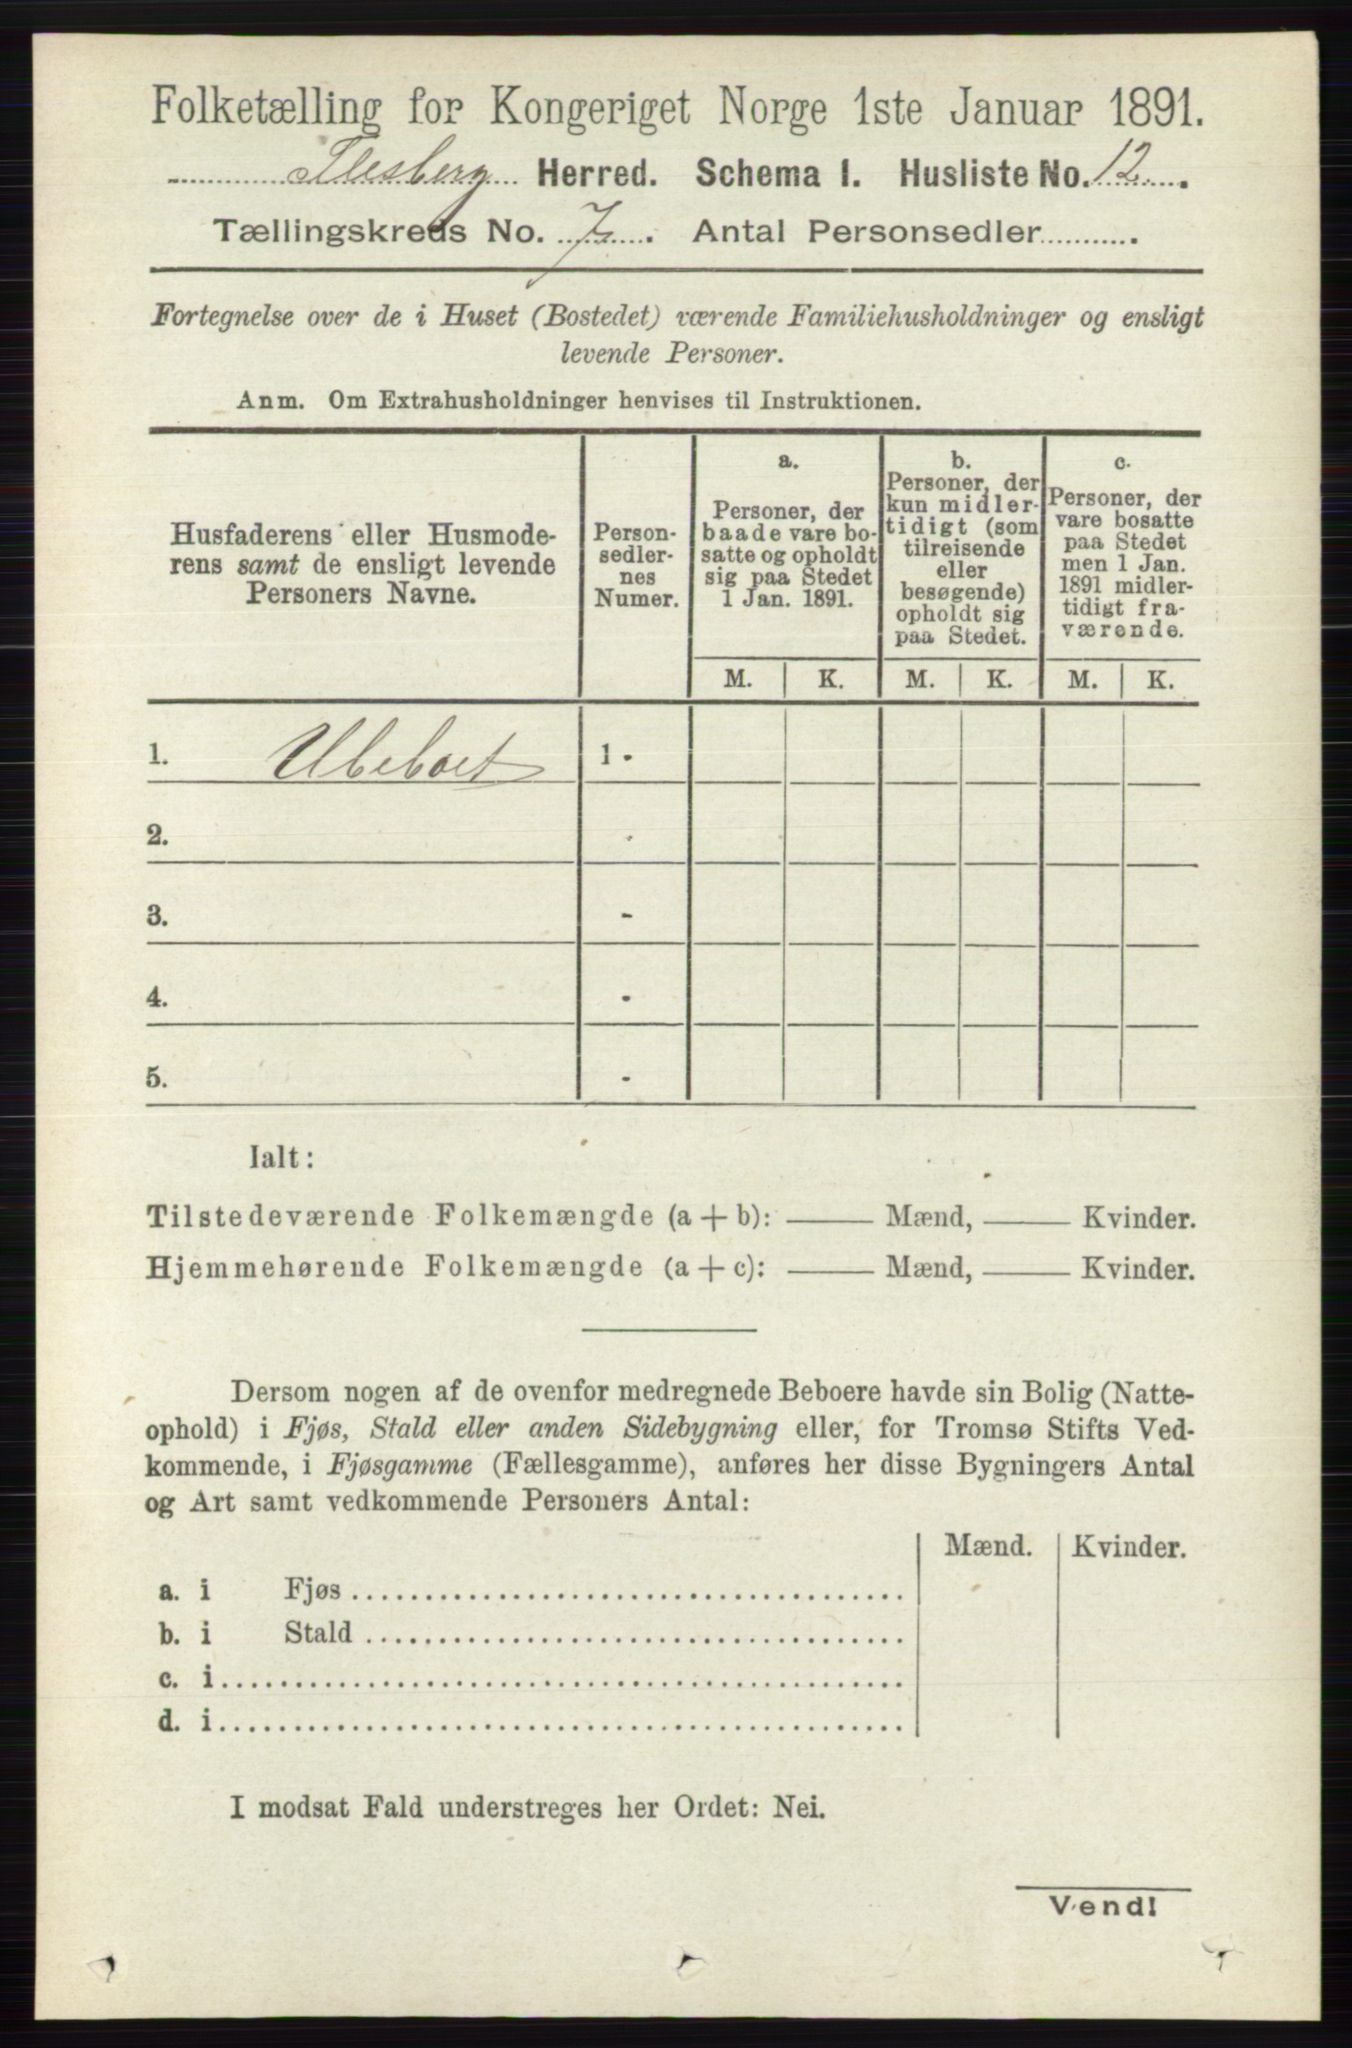 Folketælling for Kongeriget Norge 1ste Januar 1891.
Flesberg Herred. Schema 1. Husliste No. 12.
Tællingskreds No. 7. Antal Personsedler
Fortegnelse over de i Huset (Bostedet) værende Familiehusholdninger og ensligt
levende Personer.
Anm. Om Extrahusholdninger henvises til Instruktionen.
Husfaderens eller Husmode-
rens samt de ensligt levende
Personers Navne.
Person-
sedler-
nes
Numer.
a.
Personer, der
baade vare bo-
satte og opholdt
sig paa Stedet
1 Jan. 1891.
b.
Personer, der
kun midler-
tidigt (som
tilreisende
eller
besøgende)
opholdt sig
paa Stedet.
c.
Personer, der
vare bosatte
paa Stedet
men 1 Jan.
1891 midler-
tidigt fra-
værende.
M. K. M. K. M. K.
1. Ubeboet 1 -
2. -
3. -
4. -
5. -
Ialt:
Tilstedeværende Folkemængde (a + b): —— Mænd, —— Kvinder.
Hjemmehørende Folkemængde (a + c): —— Mænd, —— Kvinder.
Dersom nogen af de ovenfor medregnede Beboere havde sin Bolig (Natte-
ophold) i Fjøs, Stald eller anden Sidebygning eller, for Tromsø Stifts Ved-
kommende, i Fjøsgamme (Fællesgamme), anføres her disse Bygningers Antal
og Art samt vedkommende Personers Antal:
Mænd. Kvinder.
a. i Fjøs
b. i Stald
c. i
d. i
I modsat Fald understreges her Ordet: Nei.
Vend!